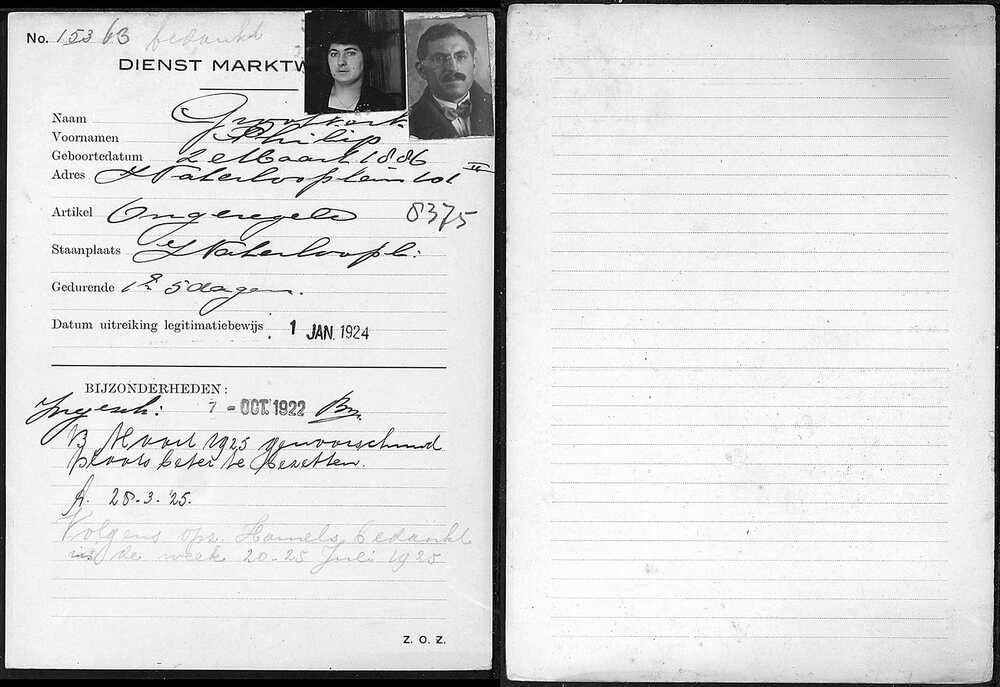 No. 15363 bedankt
DIENST MARKTW
Naam Grootkerk
Voornamen Philip
Geboortedatum 2 Maart 1886
Adres Waterlooplein 101 II
Artikel Ongeregeld 8375
Staanplaats Waterloopl:
Gedurende 1e 5 dagen.
Datum uitreiking legitimatiebewijs 1 JAN. 1924
BIJZONDERHEDEN:
Ingesch: 7 - OCT. 1922
13 Maart 1925 gewaarschuwd
plaats beter te bezetten.
A. 28-3-'25.
Volgens opz. Hamels bedankt
in de week 20-25 Juli 1925
Z. O. Z.